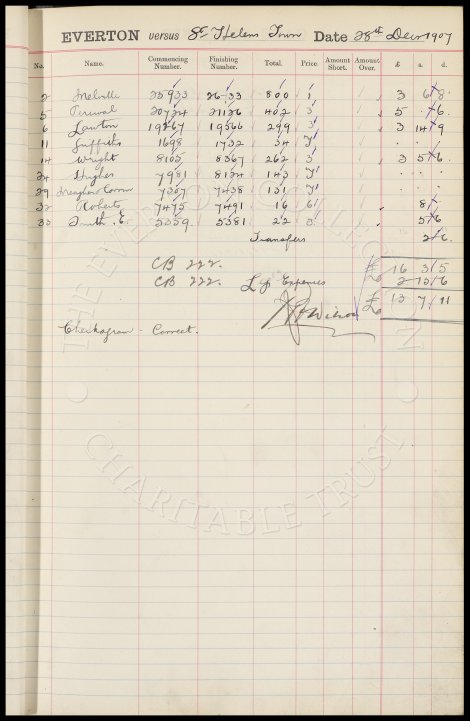 EVERTON versus St Helens Town Date 28th Decr 1907
No. Name. Commencing Number. Finishing Number. Total. Price. Amount Short. Amount Over. £ s. d.
2 Melville 25933 26733 800 1' 3 6 8
5 Percival 20724 21126 402 3' 5 " 6
6 Lawton 19267 19566 299 3' 3 14 9
11 Griffiths 1698 1732 34
14 Wright 8105 8367 262 3' 3 5 6
24 Hughes 7981 8124 143
29 7307 7438 131
32 Roberts 7475 7491 16 6' 8/-
33 Smith E 5359 5381 22 3' 5 6
Transfers 2 6
CB 222. £ 16 3 5
CB 222. Expenses 2 15 6
£ 13 7 11
Wilson
Correct.
THE EVERTON COLLECTION
CHARITABLE TRUST